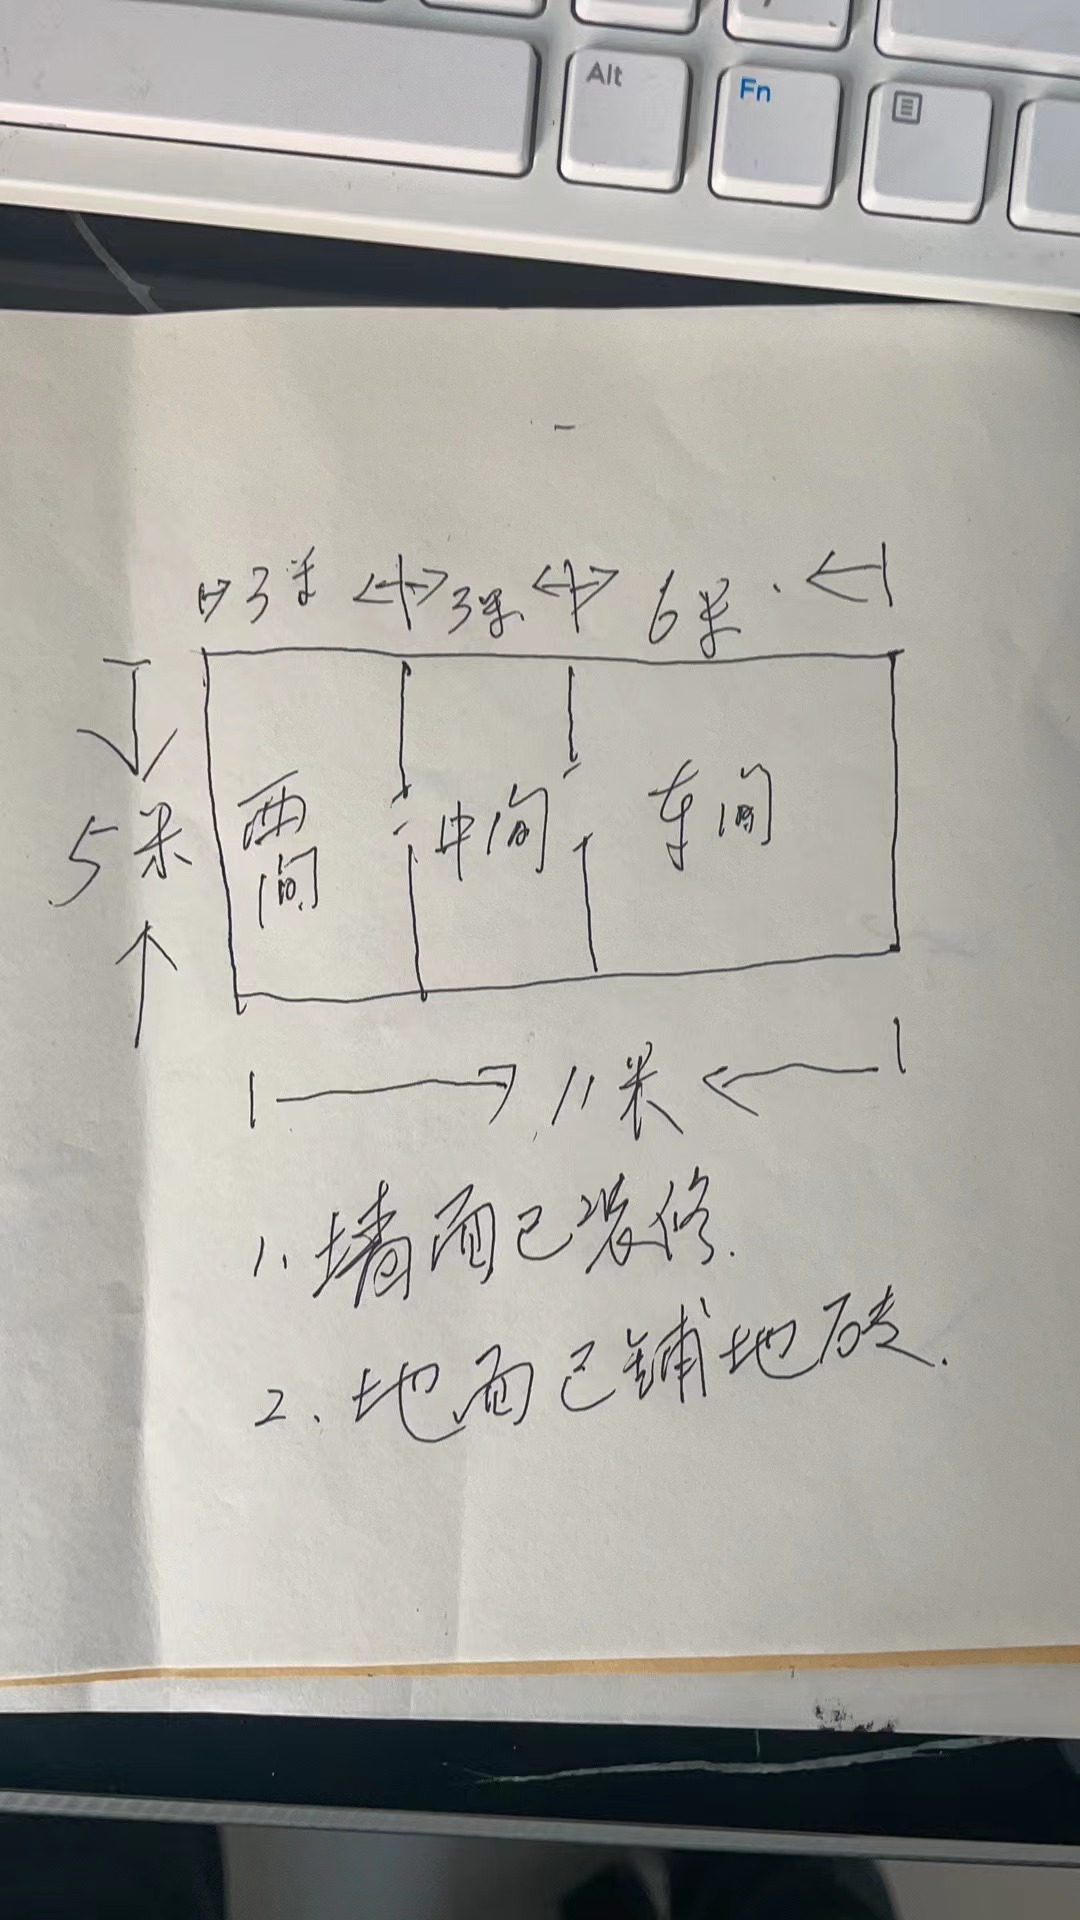 Alt Fn
3米 3米 6米
西间 中间 车间
5米
11米
1. 墙面已装修.
2. 地面已铺地砖.